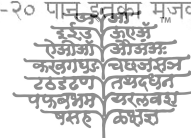 -२० पान
TM
इईउ ऊएॲ
ऐओऑ औअंअः
कखगघङ चछजझञ
टठडढण तथदधन
पफबभम यरलवश
षसह ळक्षज्ञ